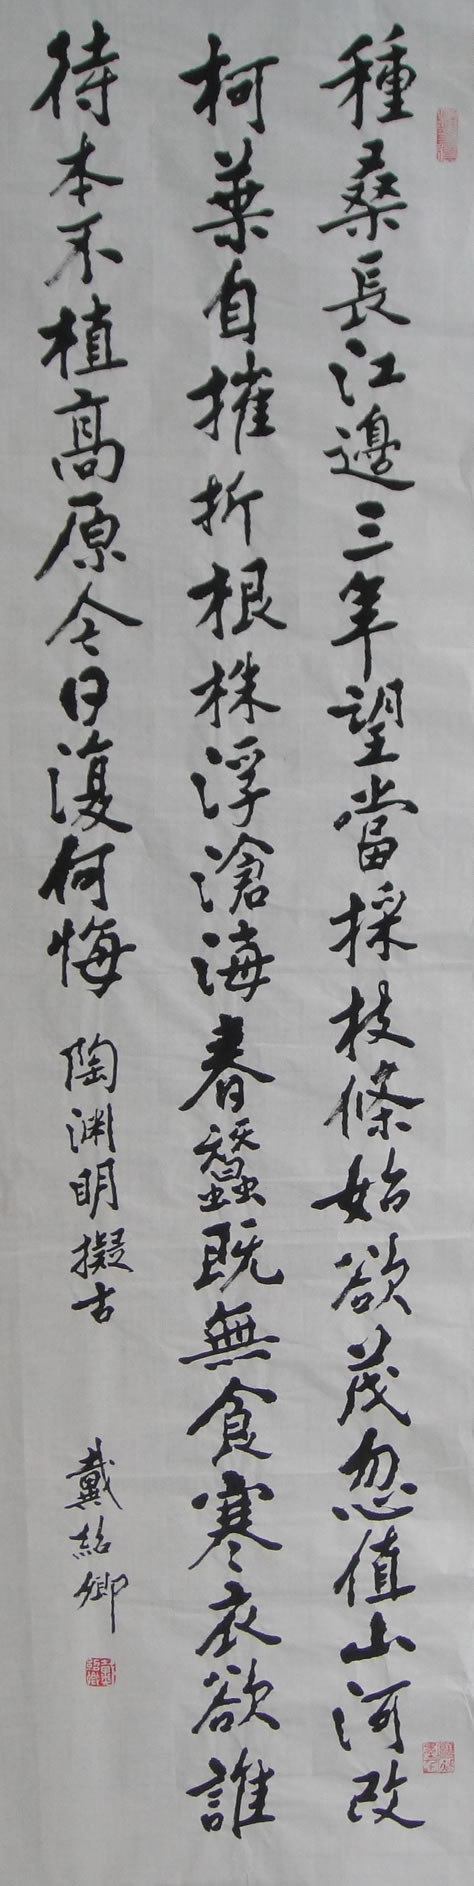 種桑長江邊三年望當採枝條始欲茂忽值山河改
柯葉自摧折根株浮滄海春蠶既無食寒衣欲誰
待本不植高原今日復何悔
陶渊明擬古
戴紹卿